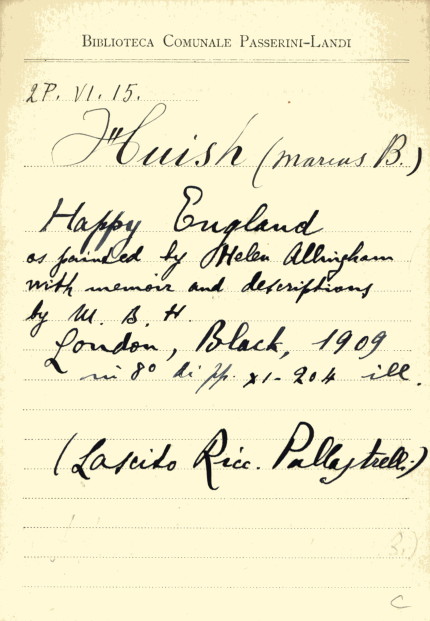 BIBLIOTECA COMUNALE PASSERINI-LANDI
2P. VI. 15.
Huish (Marcus B.)
Happy England
as painted by Helen Allingham
with memoir and descriptions
by M. B. H.
London, Black, 1909
in 8° di pp. XI-204 ill.
(Lascito Ricc. Pallastrelli)
C